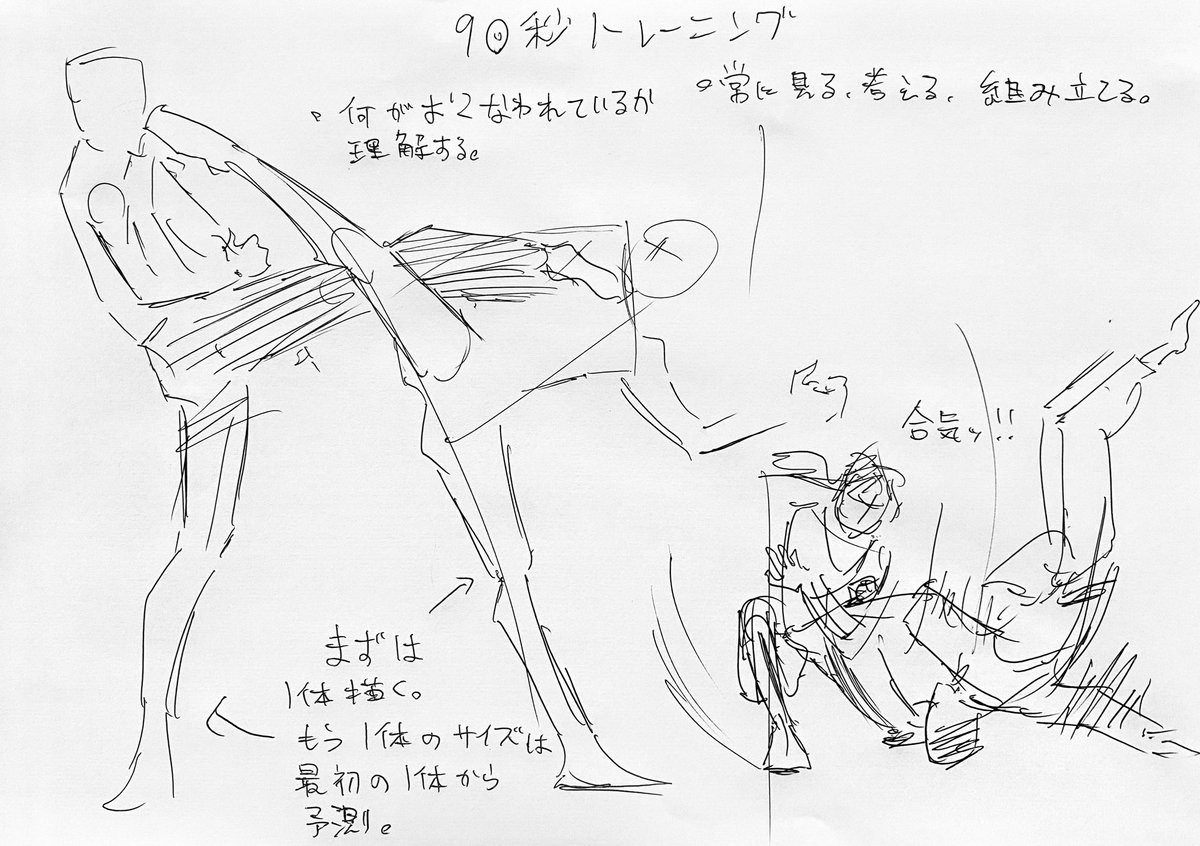 90秒トレーニング
・何がおこなわれているか
理解する。
・常に見る、考える、組み立てる。
合気ッ!!
まずは
1体描く。
もう1体のサイズは
最初の1体から
予測。